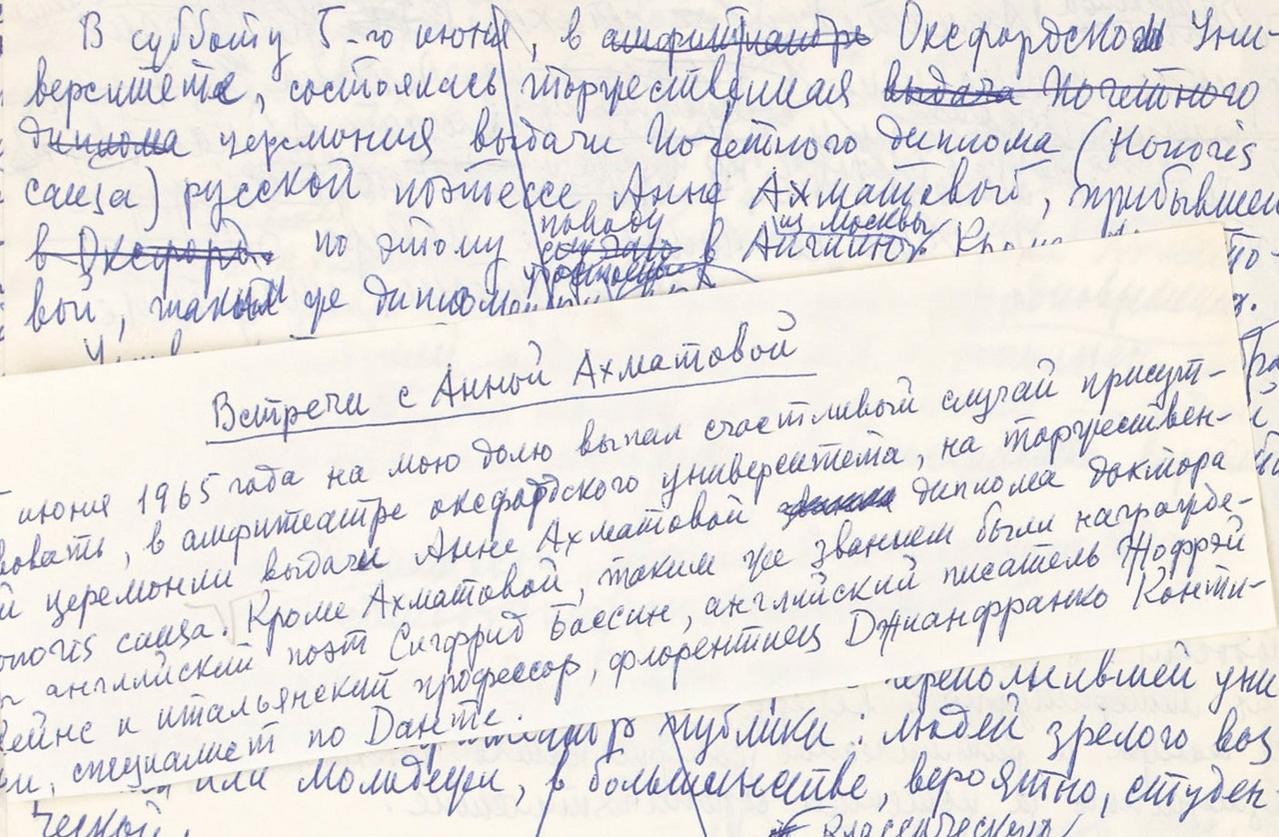 В субботу 5-го июня, в амфитеатре Оксфордском Уни-
верситета, состоялась торжественная выдача Почетного
диплома церемония выдачи Почетного диплома (Honoris
causa) русской поэтессе Анне Ахматовой, прибывшей
поводу из Москвы
в Оксфорд по этому в Англию. Кроме
вой, таким же диплом
Встречи с Анной Ахматовой
июня 1965 года на мою долю выпал счастливый случай присут-
вовать, в амфитеатре оксфордского университета, на торжествен-
й церемонии выдачи Анне Ахматовой диплома доктора
onoris causa. Кроме Ахматовой, таким же званием были награжде-
английский поэт Сигфрид Бассин, английский писатель Жоффрэй
ейнс и итальянский профессор, флорентиец Джианфранко Конти-
ни, специалист по Данте.
переполнившей уни
публики: людей зрелого воз
или молодежи, в большинстве, вероятно, студен
ческой.